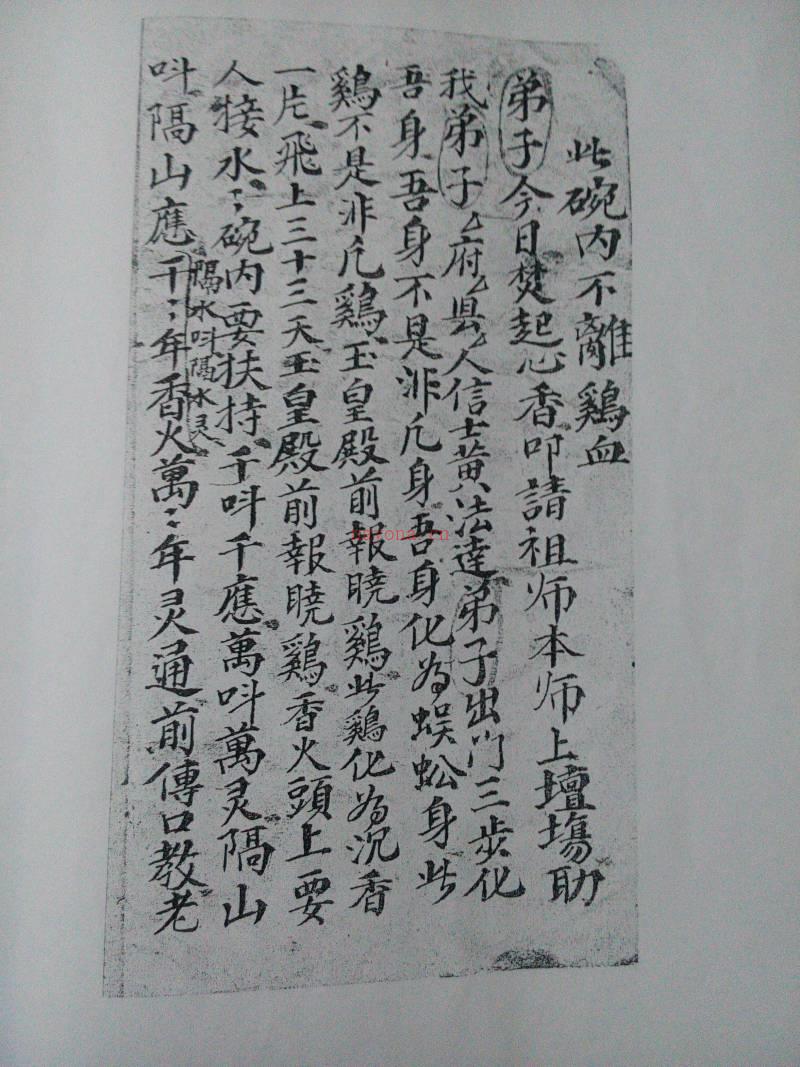 此碗内不離鷄血
弟子今日焚起心香叩請祖师本师上壇塲助
我弟子厶府厶县厶人信士黄法達弟子出门三步化
吾身吾身不是非凢身吾身化为蜈蚣身此
鷄不是非凢鷄玉皇殿前報曉鷄此鷄化为沉香
一片飛上三十三天玉皇殿前報曉鷄香火頭上要
人接水〻碗内要扶持千呌千應萬呌萬灵隔山
呌隔山應千〻年香火萬〻年灵通前傳口教老
隔水呌隔水灵